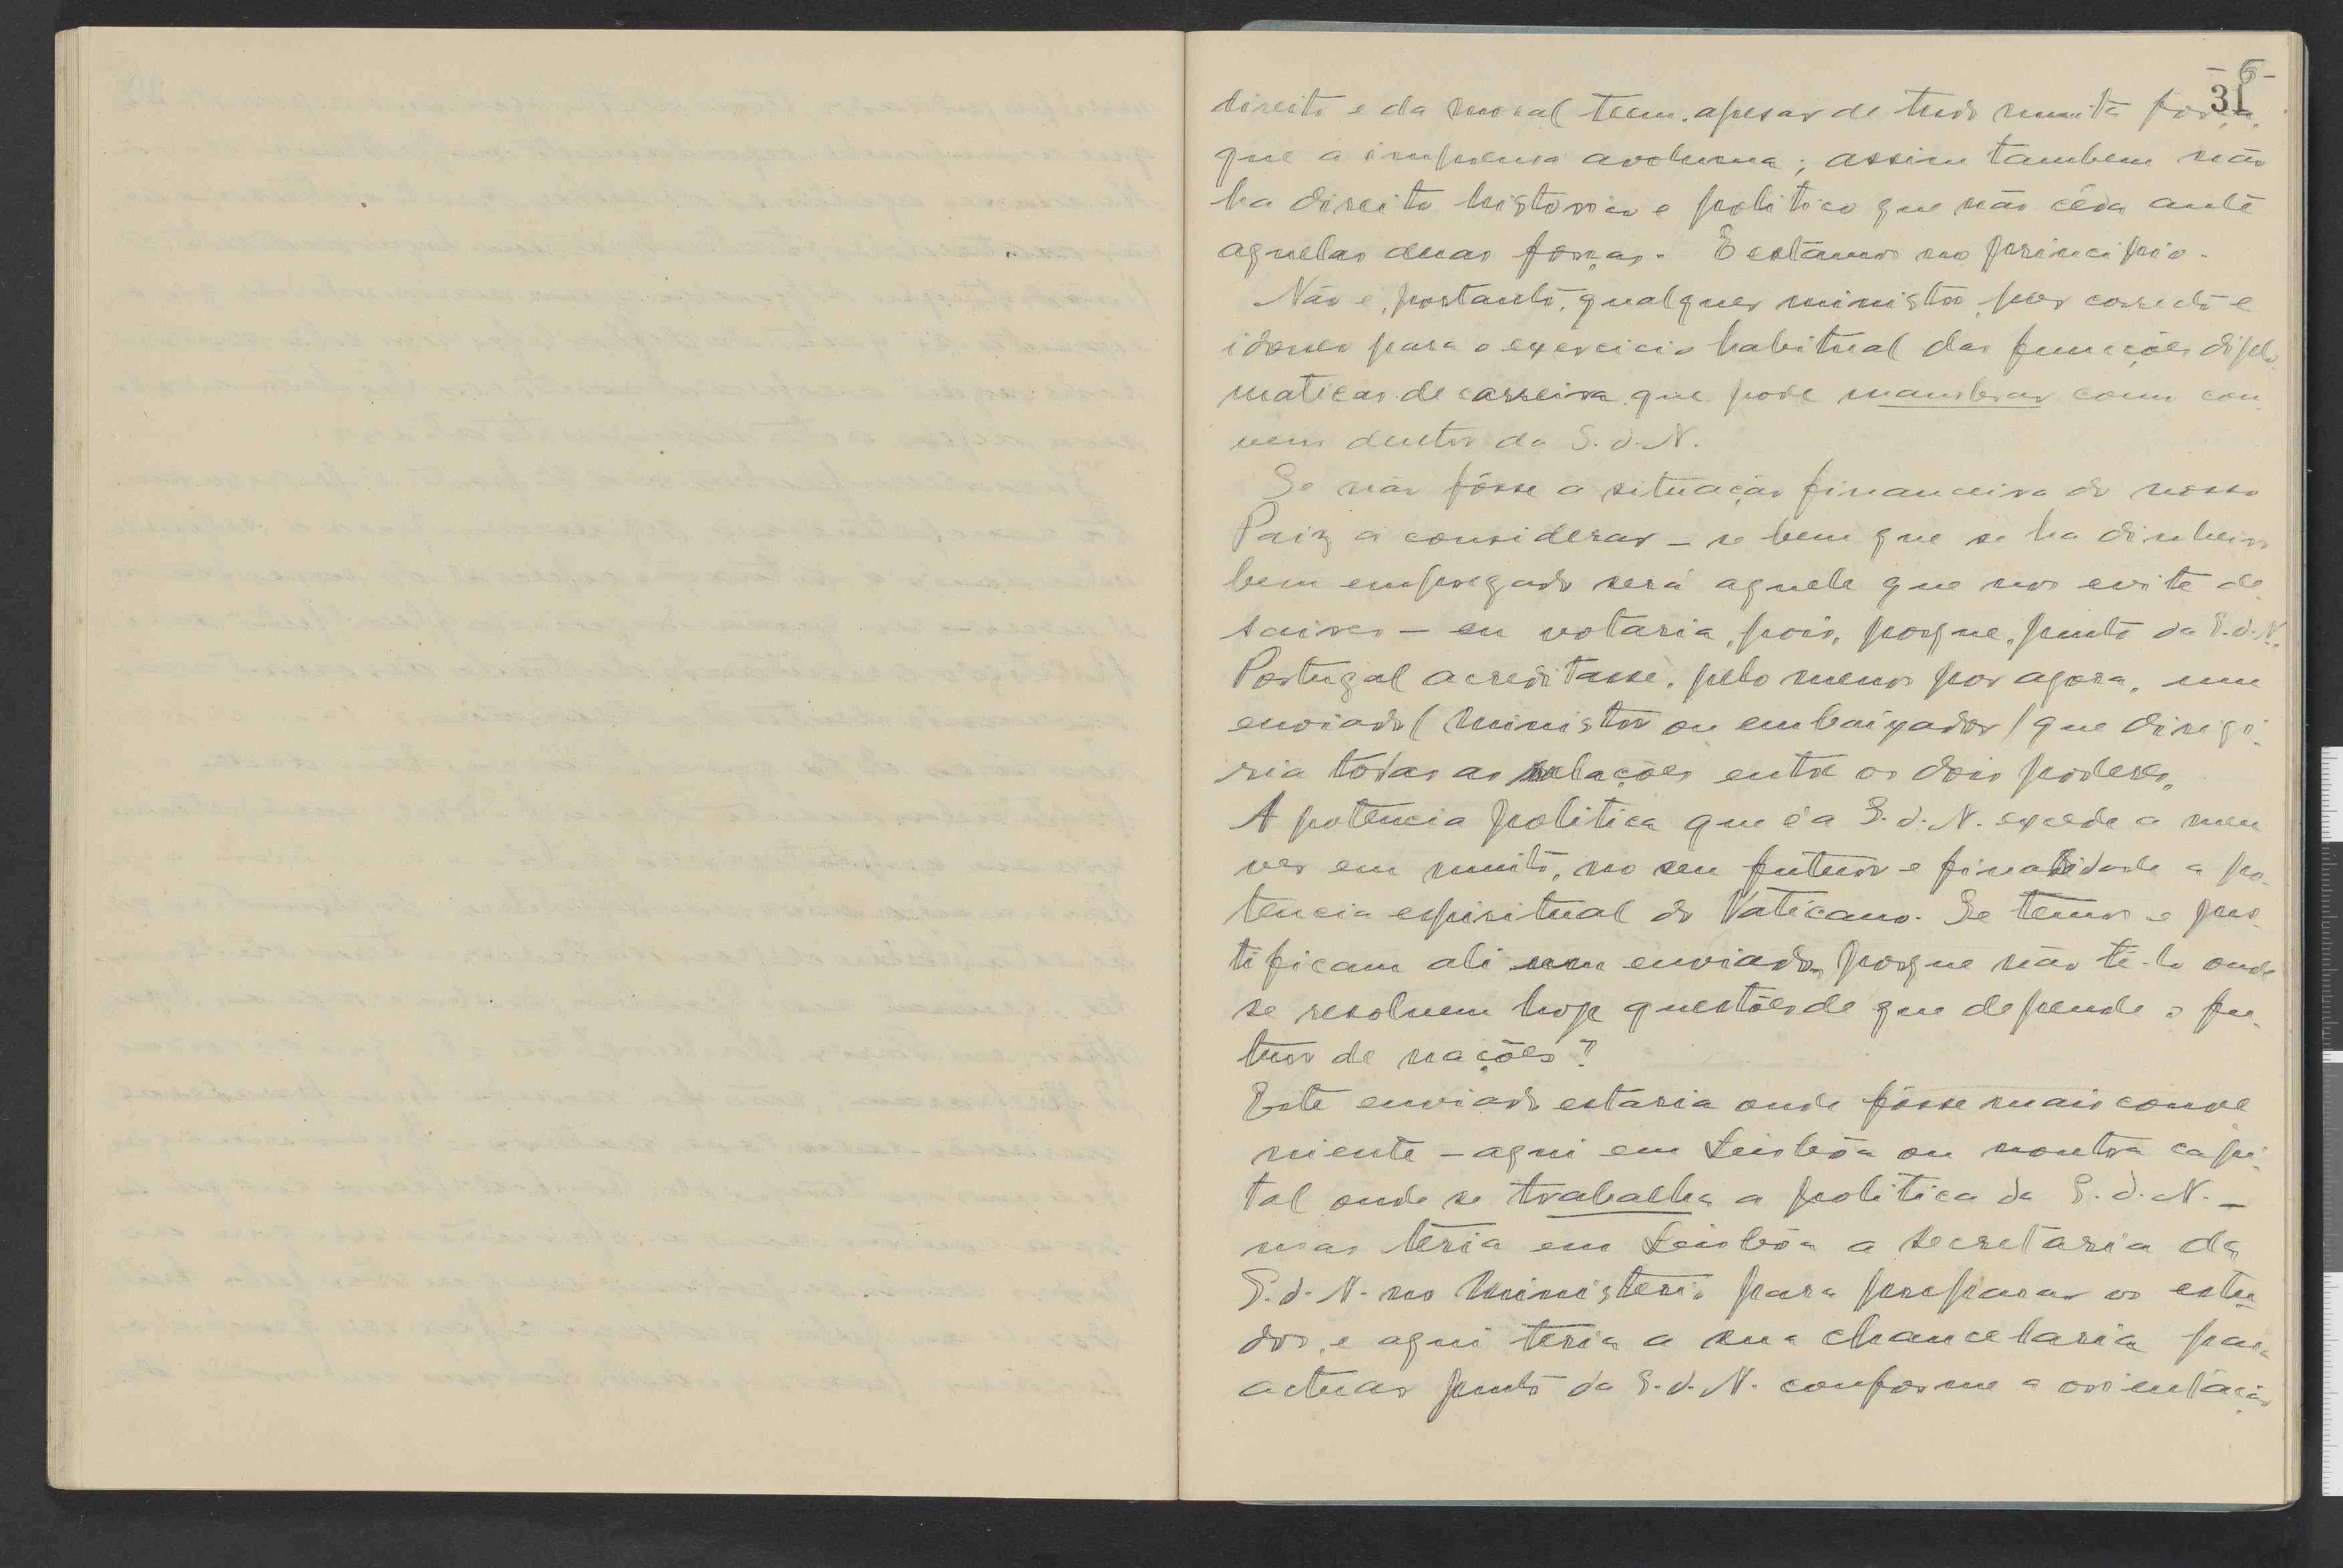 - 6 -
31
direito e da moral teem, apesar de tudo muita força,
que a imprensa avoluma; assim tambem não
ha direito historico e politico que não céda ante
aquelas duas forças. E estâmos no principio.
Não é, portanto, qualquer ministro, por correcto e
idoneo para o exercicio habitual das funcções diplo-
maticas de carreira que pode manobrar como con-
vem dentro da S. d. N.
Se não fôsse a situação financeira do nosso
Paiz a considerar – se bem que se ha dinheiro
bem empregado será aquele que nos evite de-
saires – eu votaria, pois, porque, junto da S. d. N.,
Portugal acreditasse, pelo menos por agora, um
enviado (ministro ou embaixador) que dirigi-
ria todas as relações entre os dois poderes.
A potencia politica que é a S. d. N. excede a meu
ver em muito, no seu futuro e finalidade a po-
tencia espiritual do Vaticano. Se temos e jus-
tificam ali um enviado, porque não tê-lo onde
se resolvem hoje questões de que depende o fu-
turo de nações?
Este enviado estaria onde fôsse mais conve
niente – aqui em Lisbôa ou noutra capi-
tal onde se trabalha a politica da S. d. N. –
mas teria em Lisbôa a secretaria da
S. d. N. no Ministerio para preparar os estu-
dos, e aqui teria a sua chancelaria para
actuar junto da S. d. N. conforme a orientação